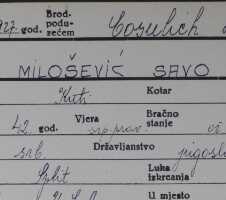 927 god. Brod-podu-zećem Cosulich
MILOŠEVIĆ SAVO
Kuti Kotar
42 god. Vjera srp. prav. Bračno stanje
srb. Državljanstvo jugosl
Split Luka iskrcanja
U mjesto